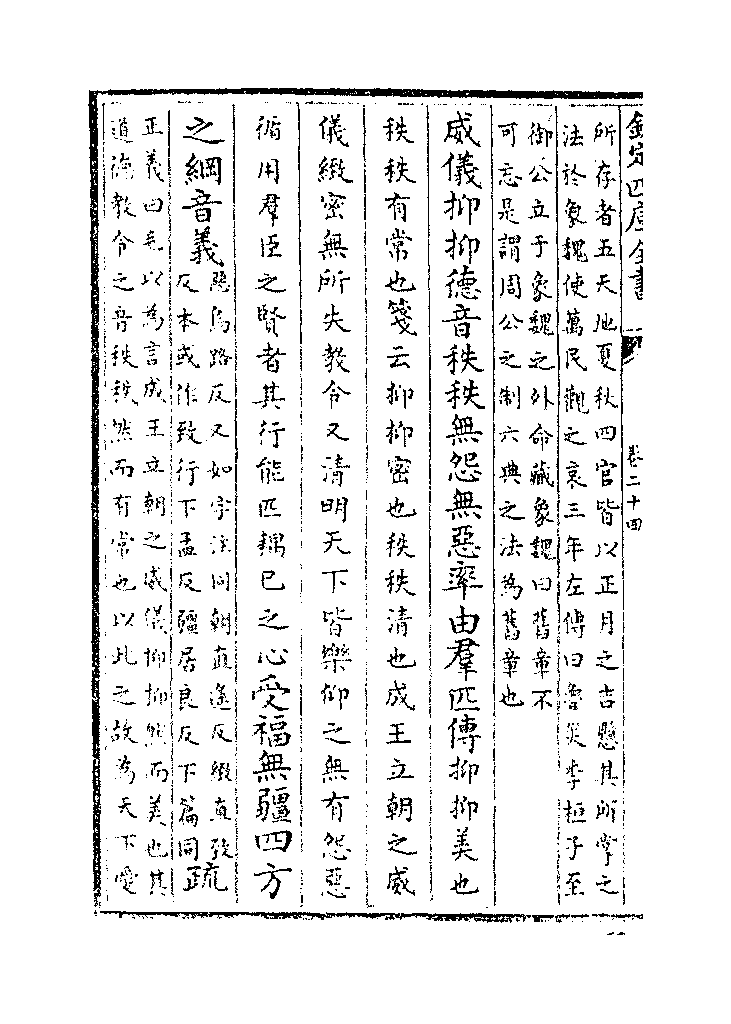 欽定四庫全書
卷二十四
所存者五天地夏秋四官皆以正月之吉懸其所掌之
法於象魏使萬民觀之哀三年左傳曰魯災季桓子至
御公立于象魏之外命藏象魏曰舊章不
可忘是謂周公之制六典之法為舊章也
威儀抑抑德音秩秩無怨無惡率由羣匹傳抑抑美也
秩秩有常也箋云抑抑密也秩秩清也成王立朝之威
儀緻密無所失教令又清明天下皆樂仰之無有怨惡
循用羣臣之賢者其行能匹耦已之心受福無疆四方
之綱音義
惡烏路反又如字注同朝直遙反緻直致
反本或作致行下孟反疆居良反下篇同
疏
正義曰毛以為言成王立朝之威儀抑抑然而美也其
道德教令之音秩秩然而有常也以此之故為天下愛